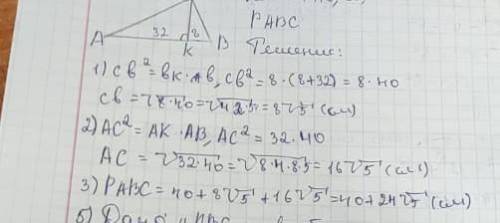 PABC
32 8
A K B
Решение:
1) CB² = BK · AB, CB² = 8 · (8+32) = 8 · 40
CB = √8·40 = = 8√5 (см)
2) AC² = AK · AB, AC² = 32 · 40
AC = √32·40 = √8·4·8·5 = 16√5 (см)
3) PABC = 40 + 8√5 + 16√5 = 40 + 24√5 (см)